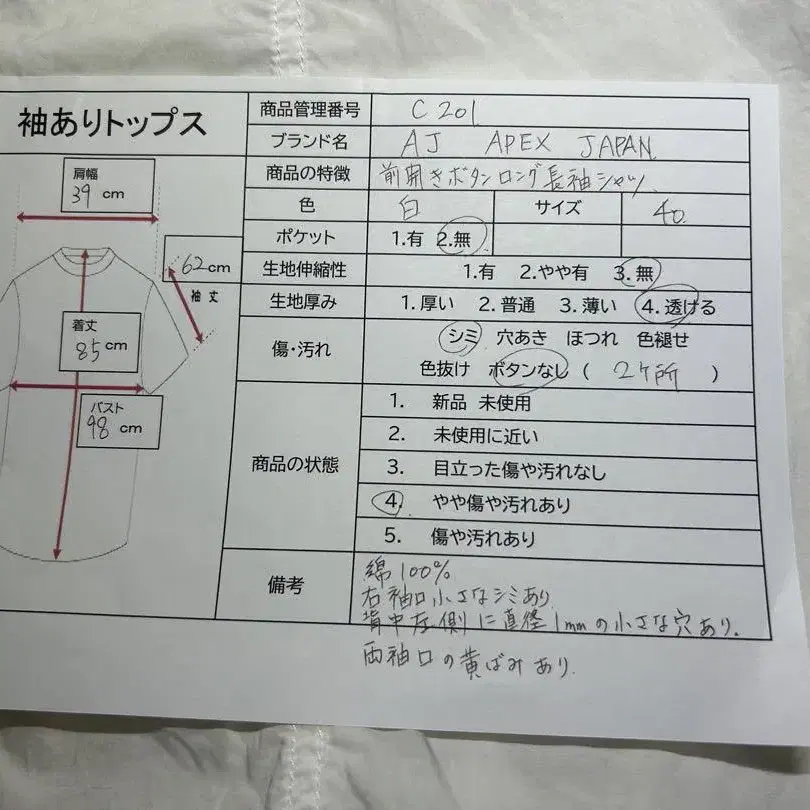 袖ありトップス
商品管理番号 C 201
ブランド名 AJ APEX JAPAN
商品の特徴 前開きボタンロング長袖シャツ
色 白 サイズ 40
ポケット 1.有 2.無
生地伸縮性 1.有 2.やや有 3.無
生地厚み 1.厚い 2.普通 3.薄い 4.透ける
傷・汚れ シミ 穴あき ほつれ 色褪せ
色抜け ボタンなし ( 2ヶ所 )
商品の状態
1. 新品 未使用
2. 未使用に近い
3. 目立った傷や汚れなし
4. やや傷や汚れあり
5. 傷や汚れあり
備考
綿100%
右袖口小さなシミあり
背中左側に直径1mmの小さな穴あり.
両袖口の黄ばみあり.
肩幅
39 cm
62cm
袖丈
着丈
85 cm
バスト
98 cm